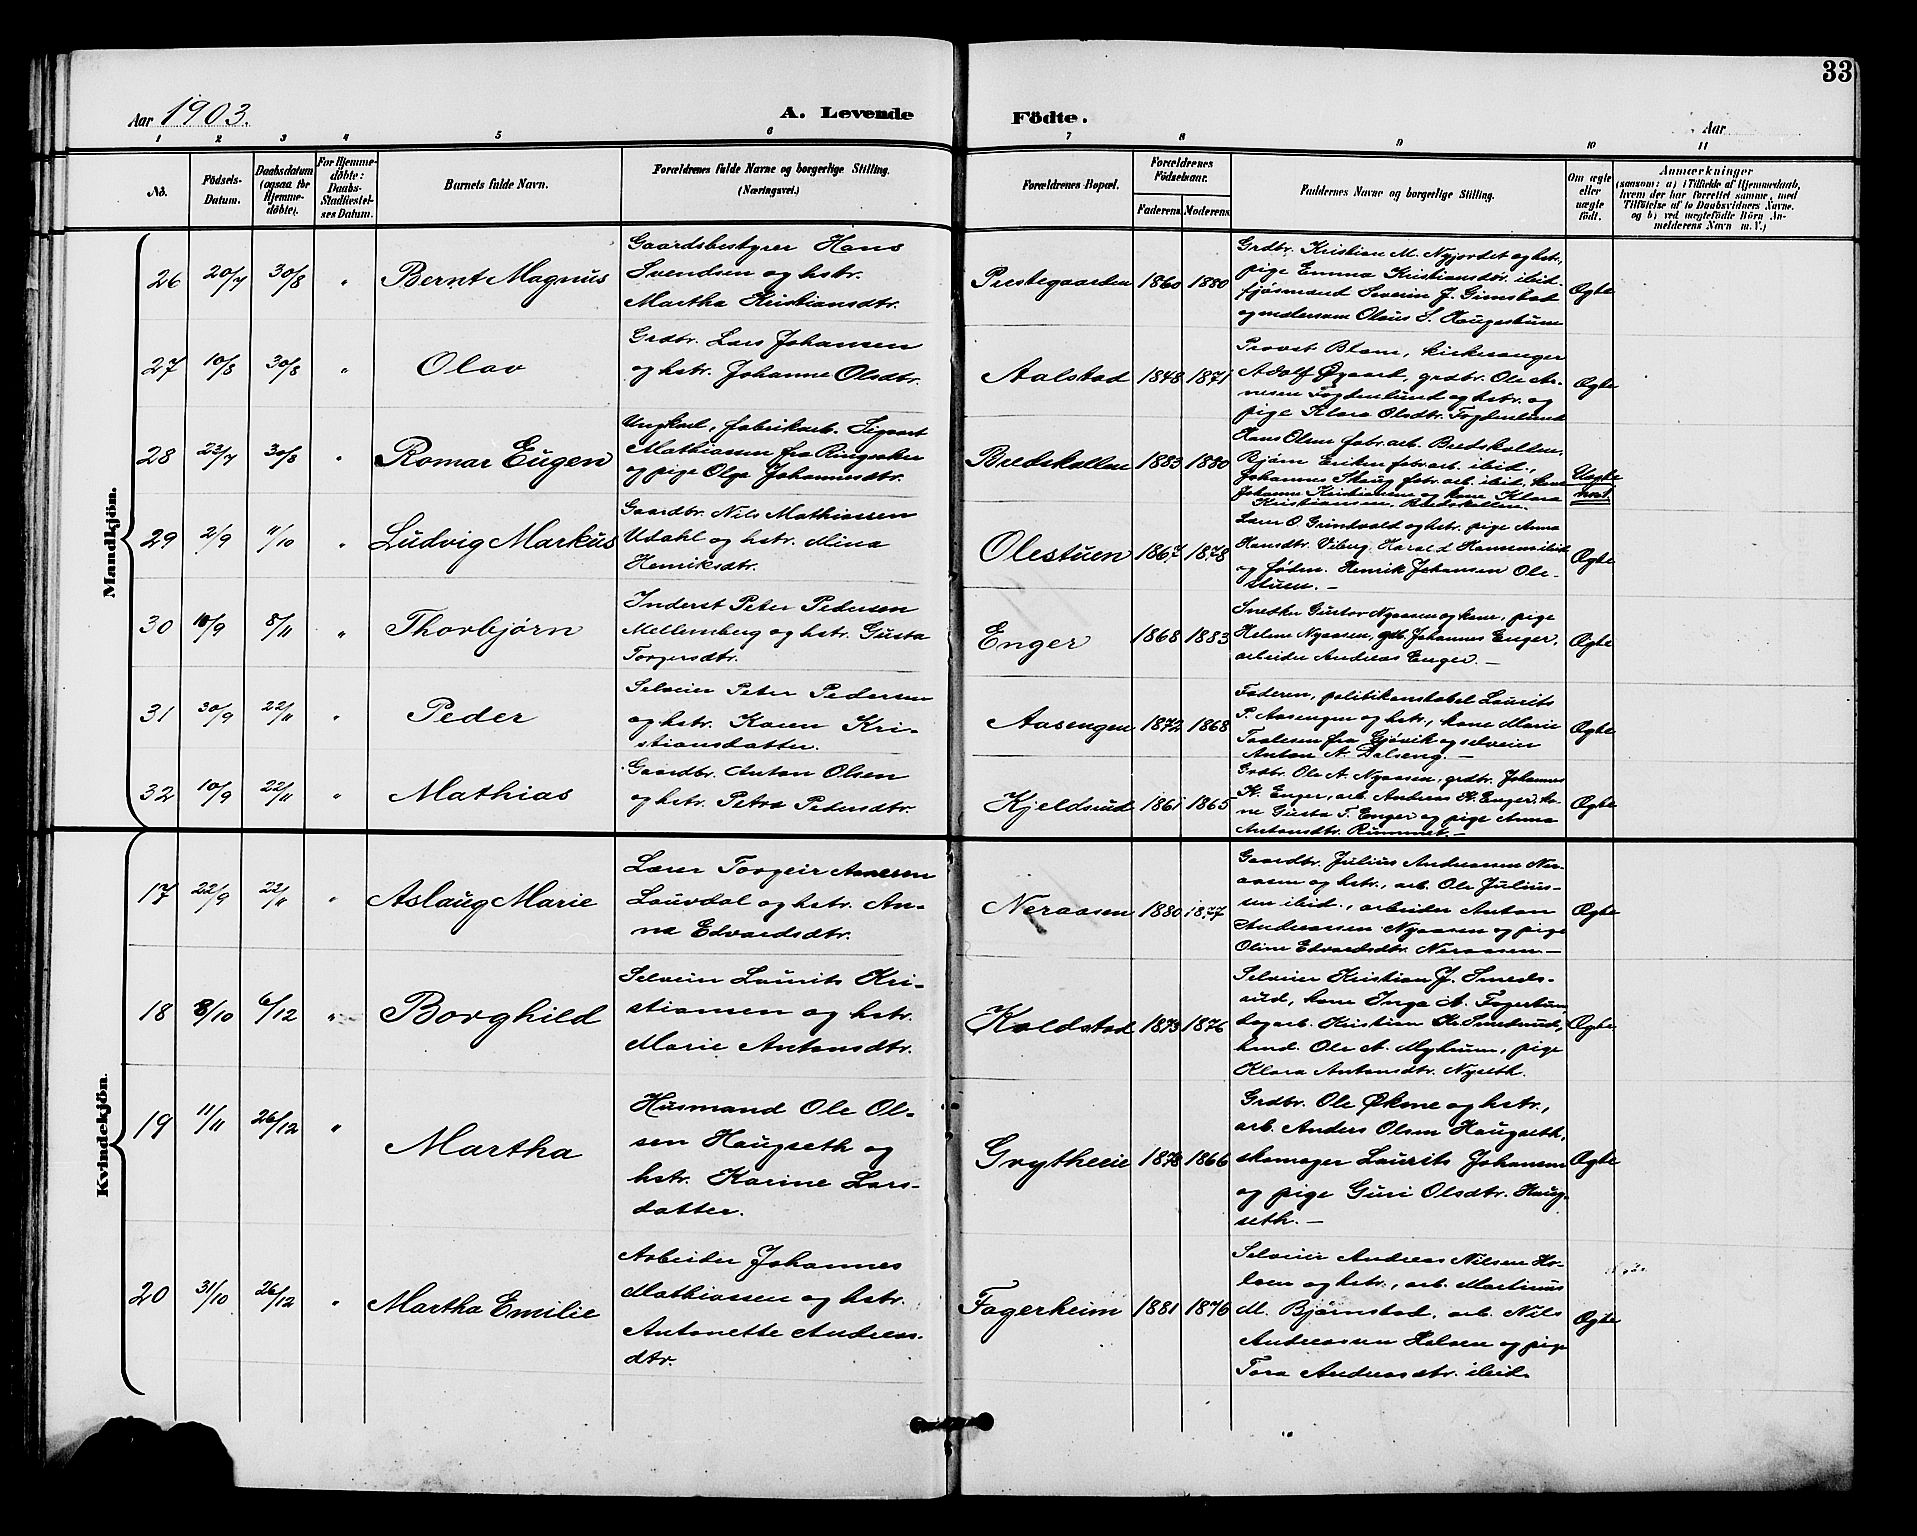 33
Aar 1903.
A. Levende Födte.
Aar
1 2 3 4 5 6 7 8 9 10 11
No.
Födsels-Datum.
Daabsdatum (ogsaa for Hjemme-döbte).
For Hjemme-döbte: Daabs-Stadfæstel-ses Datum.
Barnets fulde Navn.
Forældrenes fulde Navne og borgerlige Stilling. (Næringsvei.)
Forældrenes Bopæl.
Forældrenes Födselsaar.
Faderens
Moderens
Faddernes Navne og borgerlige Stilling.
Om ægte eller uægte födt.
Anmærkninger
(saasom: a) i Tilfælde af Hjemmedaab, hvem der har forrettet samme, med Tilföielse af to Daabsvidners Navne. og b) ved uægtefödte Börn An-melderens Navn m. V.)
Mandkjön.
26 20/7 30/8 " Bernt Magnus
Gaardsbestyrer Hans
Svendsen og hstr.
Martha Kristiansdtr.
Prestegaarden 1860 1880
Grdbr. Kristian M. Nyjordet og hstr.,
pige Emma Kristiansdtr. ibid.
fjøsmand Severin J. Gimstad
Olaus S. Haugestuen
Ægte
27 10/8 30/8 " Olav
Grdbr. Lars Johansen
og hstr. Johanne Olsdtr.
Aalstad 1848 1871
Provst Blom, kirkesanger
Adolf Øgaard, grdbr. Ole Ar-
nesen Fogdenlund og hstr. og
pige Klara Olsdtr. Fogdenlund
Ægte
28 23/7 30/8 " Romar Eugen
Ungkarl, fabrikarb. Sigvart
Mathiassen fra Ringsaker
og pige Olga Johannesdtr.
Bredskallen 1883 1880
Hans Olsen fabr.arb. Bredskallen,
Bjørn Eriksen fabr.arb. ibid.,
Johannes Skaug fabr.arb. ibid., kone
Johanne Kristiansen og kone Klara
Kristiansen, Bredskallen.
Uægte
29 2/9 11/10 " Ludvig Markus
Gaardbr. Nils Mathiassen
Udahl og hstr. Mina
Henriksdtr.
Olestuen 1867 1878
Lars O. Grindvold og hstr. pige Anna
Hansdtr. Viberg, Harald Hansen ibid
og faderen. Henrik Johansen Ole-
stuen. —
Ægte
30 10/9 8/11 " Thorbjørn
Inderst Peter Pedersen
Mellemsberg og hstr. Gusta
Torgersdtr.
Enger 1868 1883
Snedker Gustav Nyaasen og kone, pige
Helene Nyaasen, gdb. Johannes Enger,
arbeider Andreas Enger. —
Ægte
31 30/9 22/11 " Peder
Selveier Peter Pedersen
og hstr. Karen Kri-
stiansdatter.
Aasengen 1872 1868
Faderen, politikonstabel Laurits
P. Aasengen og hstr., kone Marie
Paalesen fra Gjøvik og selveier
Anton A. Dalseng. —
Ægte
32 10/9 22/11 " Mathias
Gaardbr. Anton Olsen
og hstr. Petra Pedersdtr.
Kjeldsrud 1861 1865
Grdbr. Ole A. Nyaasen, grdbr. Johannes
K. Enger, arb. Andreas K. Enger, ko-
ne Gusta T. Enger og pige Anna
Antonsdtr. Rummet. —
Ægte
Kvindekjön.
17 22/9 22/11 " Aslaug Marie
Lærer Torgeir Arnesen
Lauvdal og hstr. An-
na Edvardsdtr.
Neraasen 1880 1877
Gaardbr. Julius Andreassen Ner-
aasen og hstr., arb. Ole Julius-
sen ibid., arbeider Anton
Andreassen Nyaasen og pige
Oline Edvardsdtr. Neraasen —
Ægte
18 8/10 6/12 " Borghild
Selveier Laurits Kri-
stiansen og hstr.
Marie Antonsdtr.
Koldstad 1873 1876
Selveier Kristian J. Smeds-
rud, kone Inga A. Fogertun,
Kristian Kr. Smedsrud,
Ole A. Myhrum, pige
Klara Antonsdtr. Nyseth.
Ægte
19 11/11 26/12 " Martha
Husmand Ole Ol-
sen Haugseth og
hstr. Karine Lars-
datter.
Grytheeie 1878 1866
Grdbr. Ole Økme og hstr.,
arb. Anders Olsen Haugseth,
skomager Laurits Johansen
og pige Guri Olsdtr. Haug-
seth. —
Ægte
20 31/10 26/12 " Martha Emilie
Arbeider Johannes
Mathiassen og hstr.
Antonette Andreas-
dtr.
Fagerheim 1881 1876
Selveier Andreas Nilsen Ho-
lsen og hstr., arb. Martinus
M. Bjørnstad, arb. Nils
Andreassen Holsen og pige
Tora Andreasdtr. ibid.
Ægte